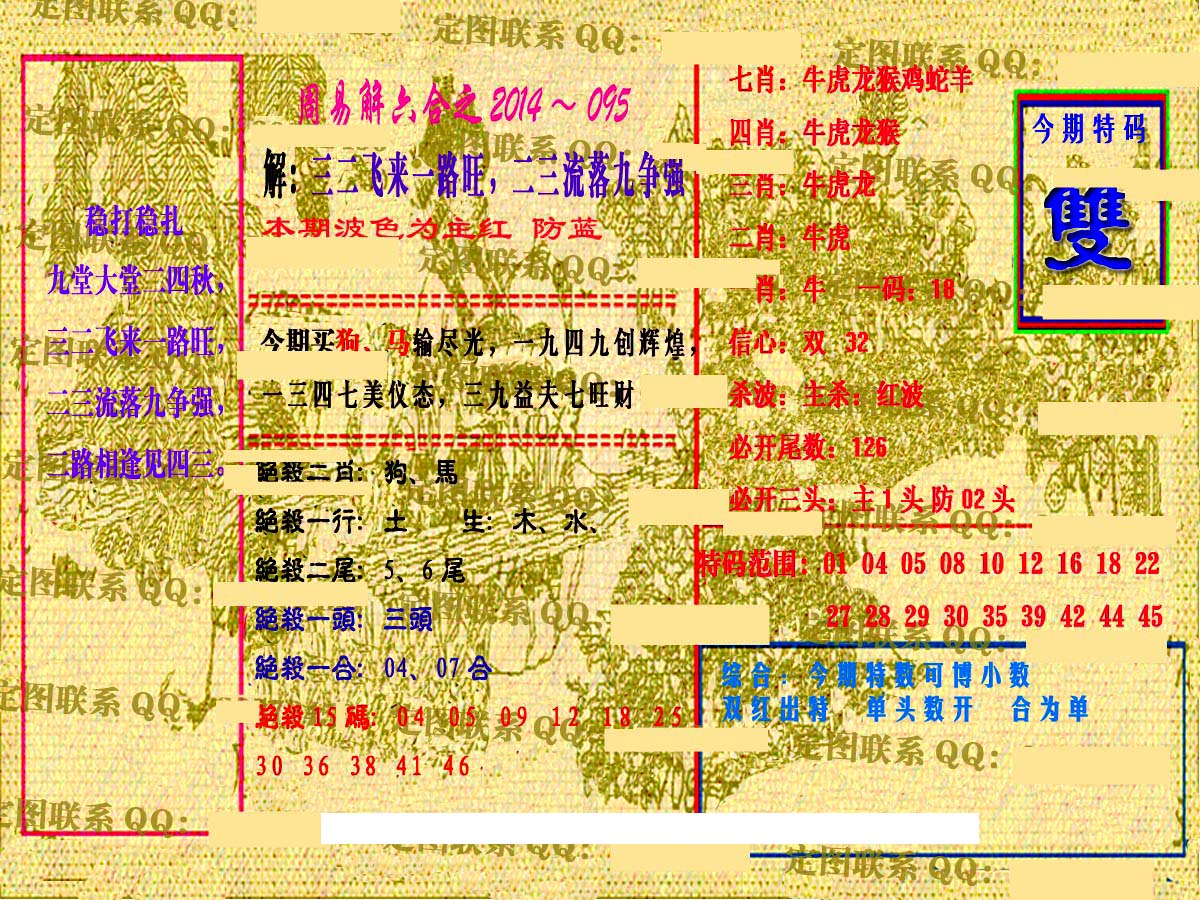 稳打稳扎
九堂大堂二四秋，
三二飞来一路旺，
二三流落九争强，
二路相逢见四三。
周易解六合之 2014～095
解：三二飞来一路旺，二三流落九争强
本期波色为主红 防蓝
今期买狗、马输尽光，一九四九创辉煌，
一三四七美仪态，三九益夫七旺财
絕殺二肖：狗、馬
絕殺一行：土 生：木、水、
絕殺二尾：5、6尾
絕殺一頭：三頭
絕殺一合：04、07合
絕殺15碼：04 05 09 12 18 25
30 36 38 41 46
七肖：牛虎龙猴鸡蛇羊
四肖：牛虎龙猴
三肖：牛虎龙
二肖：牛虎
肖：牛 一码：18
信心：双 32
杀波：主杀：红波
必开尾数：126
必开三头：主1头防02头
今期特码
雙
特码范围：01 04 05 08 10 12 16 18 22
27 28 29 30 35 39 42 44 45
综合：今期特数可博小数
双红出特 单头数开 合为单
定图联系QQ：
定图联系QQ：
定图联系QQ：
定图联系QQ：
定图联系QQ：
定图联系QQ：
定图联系QQ：
定图联系QQ：
定图联系QQ：
定图联系QQ：